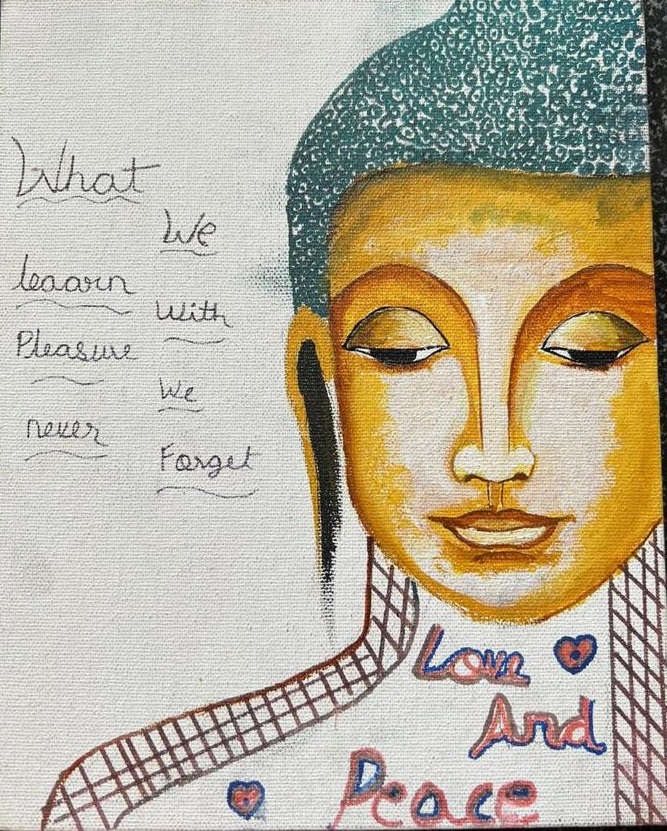 What
We
learn
With
Pleasure
We
never
Forget
Love
And
Peace